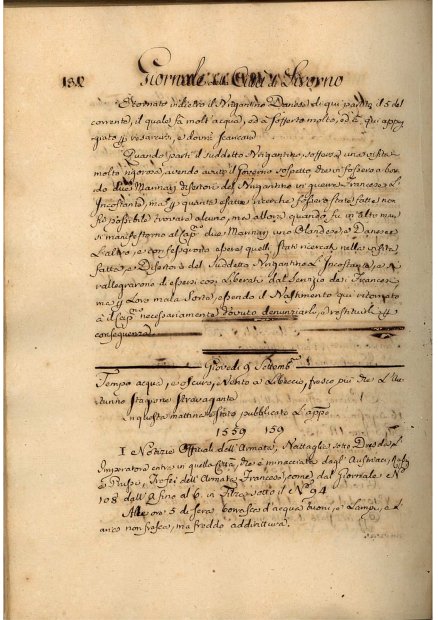 132 Giornale della Città di Livorno
È tornato indietro il Brigantino Danese di qui partito il 5 del
corrente, il quale fà molt'acqua, ed à sofferto molto, ed à qui appog
giato per risarcirsi, e dovrà scaricare
Quando partì il suddetto Brigantino, sofferse una visita
molto rigorosa, avendo avuto il Governo sospetto che vi fossero a bor
do due Marinari disertori del Brigantino in guerra Francese L'
Incostante, ma per quante esatte ricerche fossero state fatte non
fù possibile trovare alcuno, ma allora quando fù in alto mare
si manifestorno al Cap.º due Marinari uno Olandese, e Danese
L'altro, e confessarono essere quelli stati ricercati nella visita
fatta, e Disertori del Suddetto Brigantino L'Incostante, e si
rallegrarono di essersi così Liberati dal Servizio dei Francesi
ma per Loro mala Sorte, essendo il Bastimento qui ritornato
à il Cap.º necessariamente dovuto denunziarli, e restituirli per
conseguenza
Giovedì 9 Settemb.
Tempo acqua, e oscuro, Vento a Libeccio, fresco più che L'Au
tunno stagione stravagante
In questa mattina è stato pubblicato L'appo
1559 159
Le Notizie Officiali dell'Armata, Battaglia sotto Dresda L'
Imperatore entra in quella Città, che è minacciata dagl'Austriaci,
e Russi, Trofei dell'Armata Francese, come dal Giornale N.º
108 dell'A fino al 6 in Filza sotto il N.º 94
Alle ore 5 di sera borrasca d'acqua tuoni, e Lampi, e L'
aria non fresca, ma fredda addirittura.